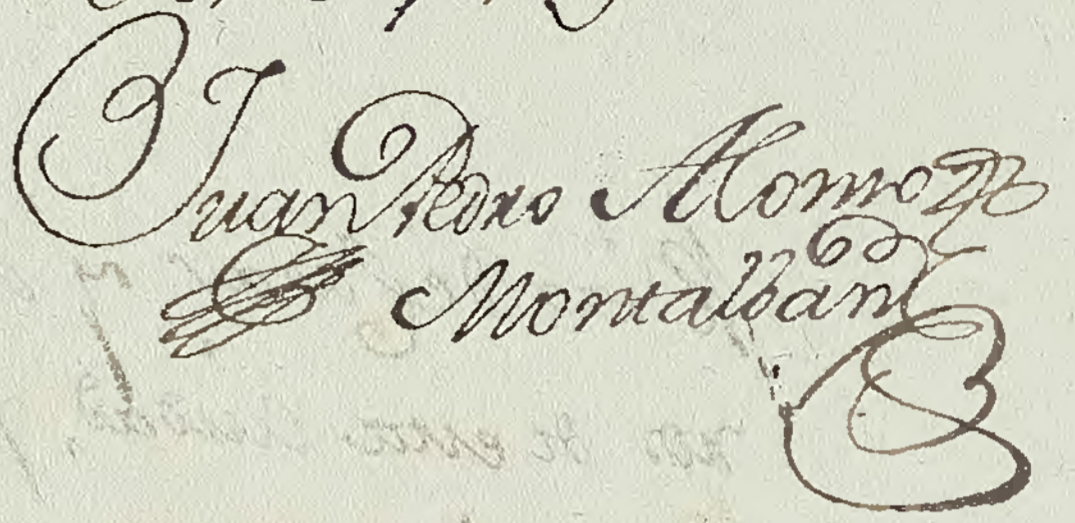 Juan Pedro Alonso
Montalban